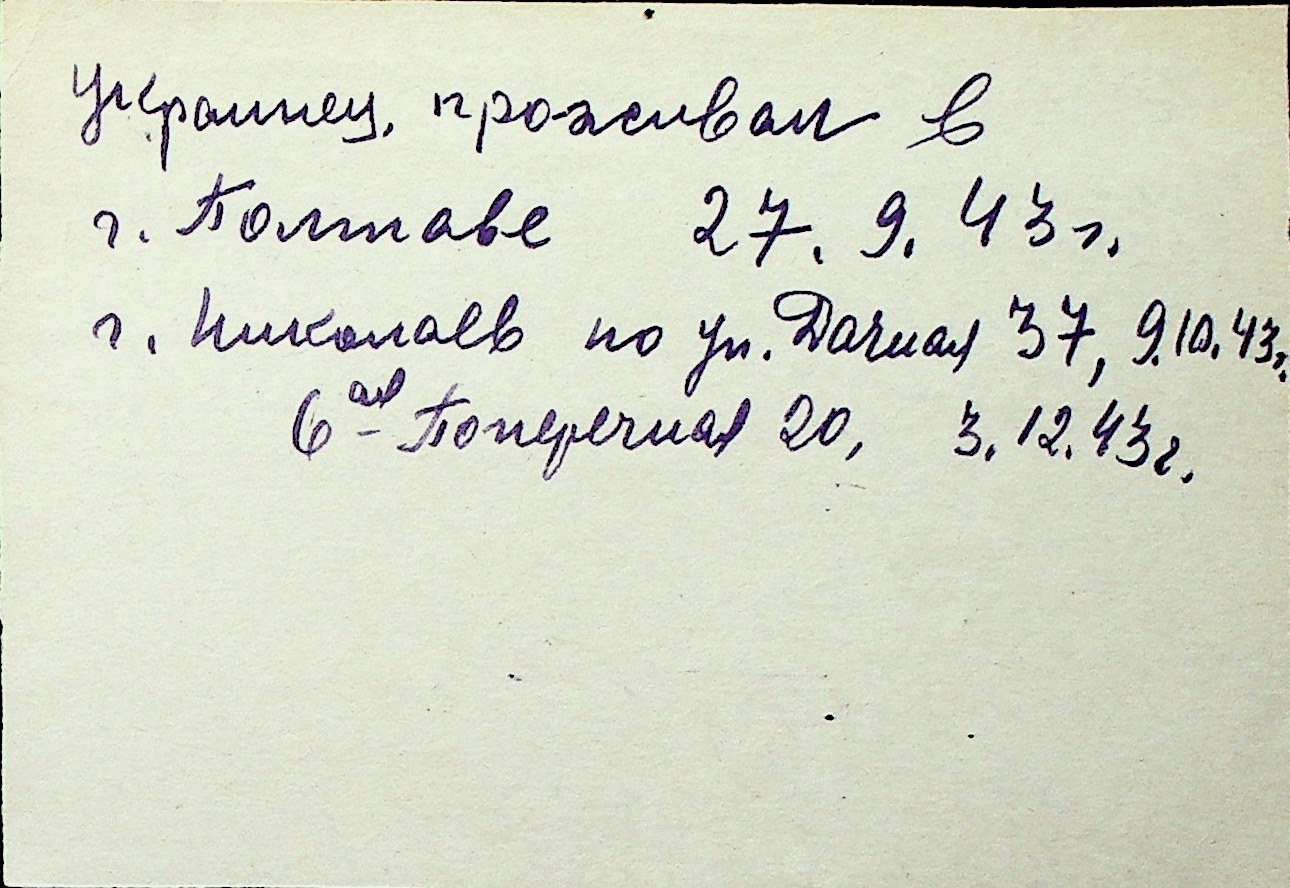 Украинец, проживал в
г. Полтаве 27. 9. 43 г.
г. Николаев по ул. Дачная 37, 9.10.43г.
6-ая Поперечная 20, 3.12.43г.